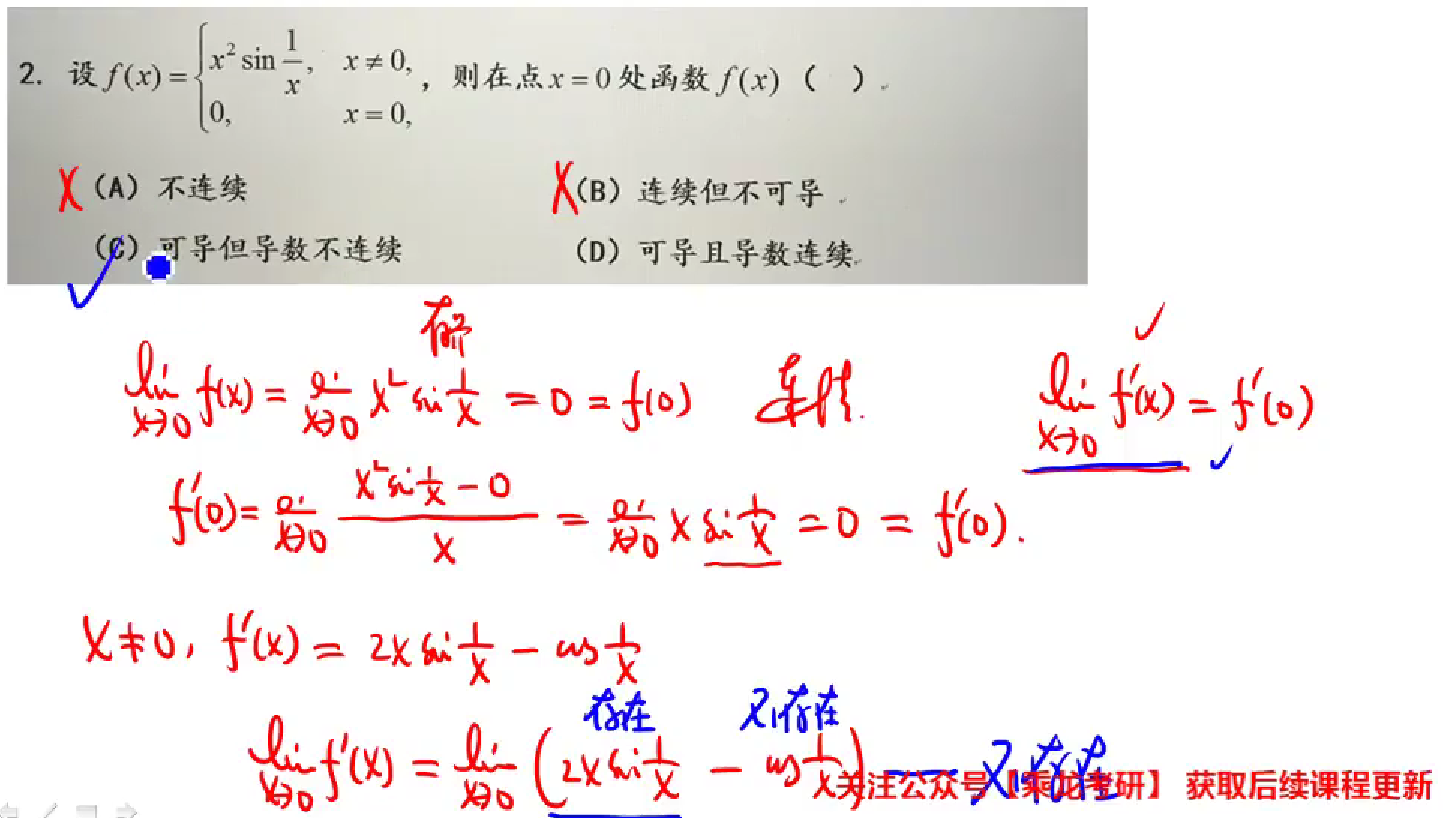 2. 设 f(x) = { x² sin 1/x, x ≠ 0, 0, x = 0, ,则在点 x = 0 处函数 f(x) ( ).
X (A) 不连续 X (B) 连续但不可导
(C) 可导但导数不连续 (D) 可导且导数连续
有界
lim x→0 f(x) = lim x→0 x² sin 1/x = 0 = f(0) 连续. lim x→0 f'(x) = f'(0)
f'(0) = lim x→0 (x² sin 1/x − 0)/x = lim x→0 x sin 1/x = 0 = f'(0).
x ≠ 0, f'(x) = 2x sin 1/x − cos 1/x
存在 不存在
lim x→0 f'(x) = lim x→0 (2x sin 1/x − cos 1/x) — 不存在
关注公众号【乘龙考研】 获取后续课程更新